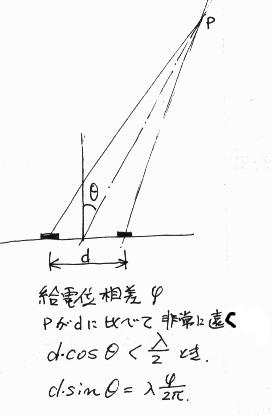 P
θ
d
給電位相差 φ
Pがdに比べて 非常に遠く
d·cosθ < λ/2 とき.
d·sinθ = λ φ/2π.